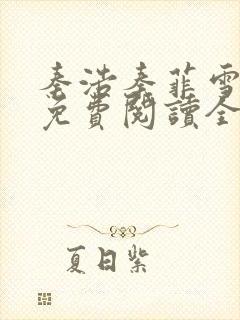 秦浩秦菲雪
免費閱讀全
夏日紫